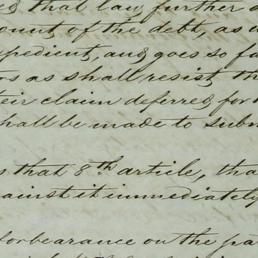 that law further
ount of the debt, as
pedient, and goes so fa
rs as shall resist th
eir claim deferred for
hall be made to subm
s that 8th article, tha
gainst it immediately
forbearance on the pa